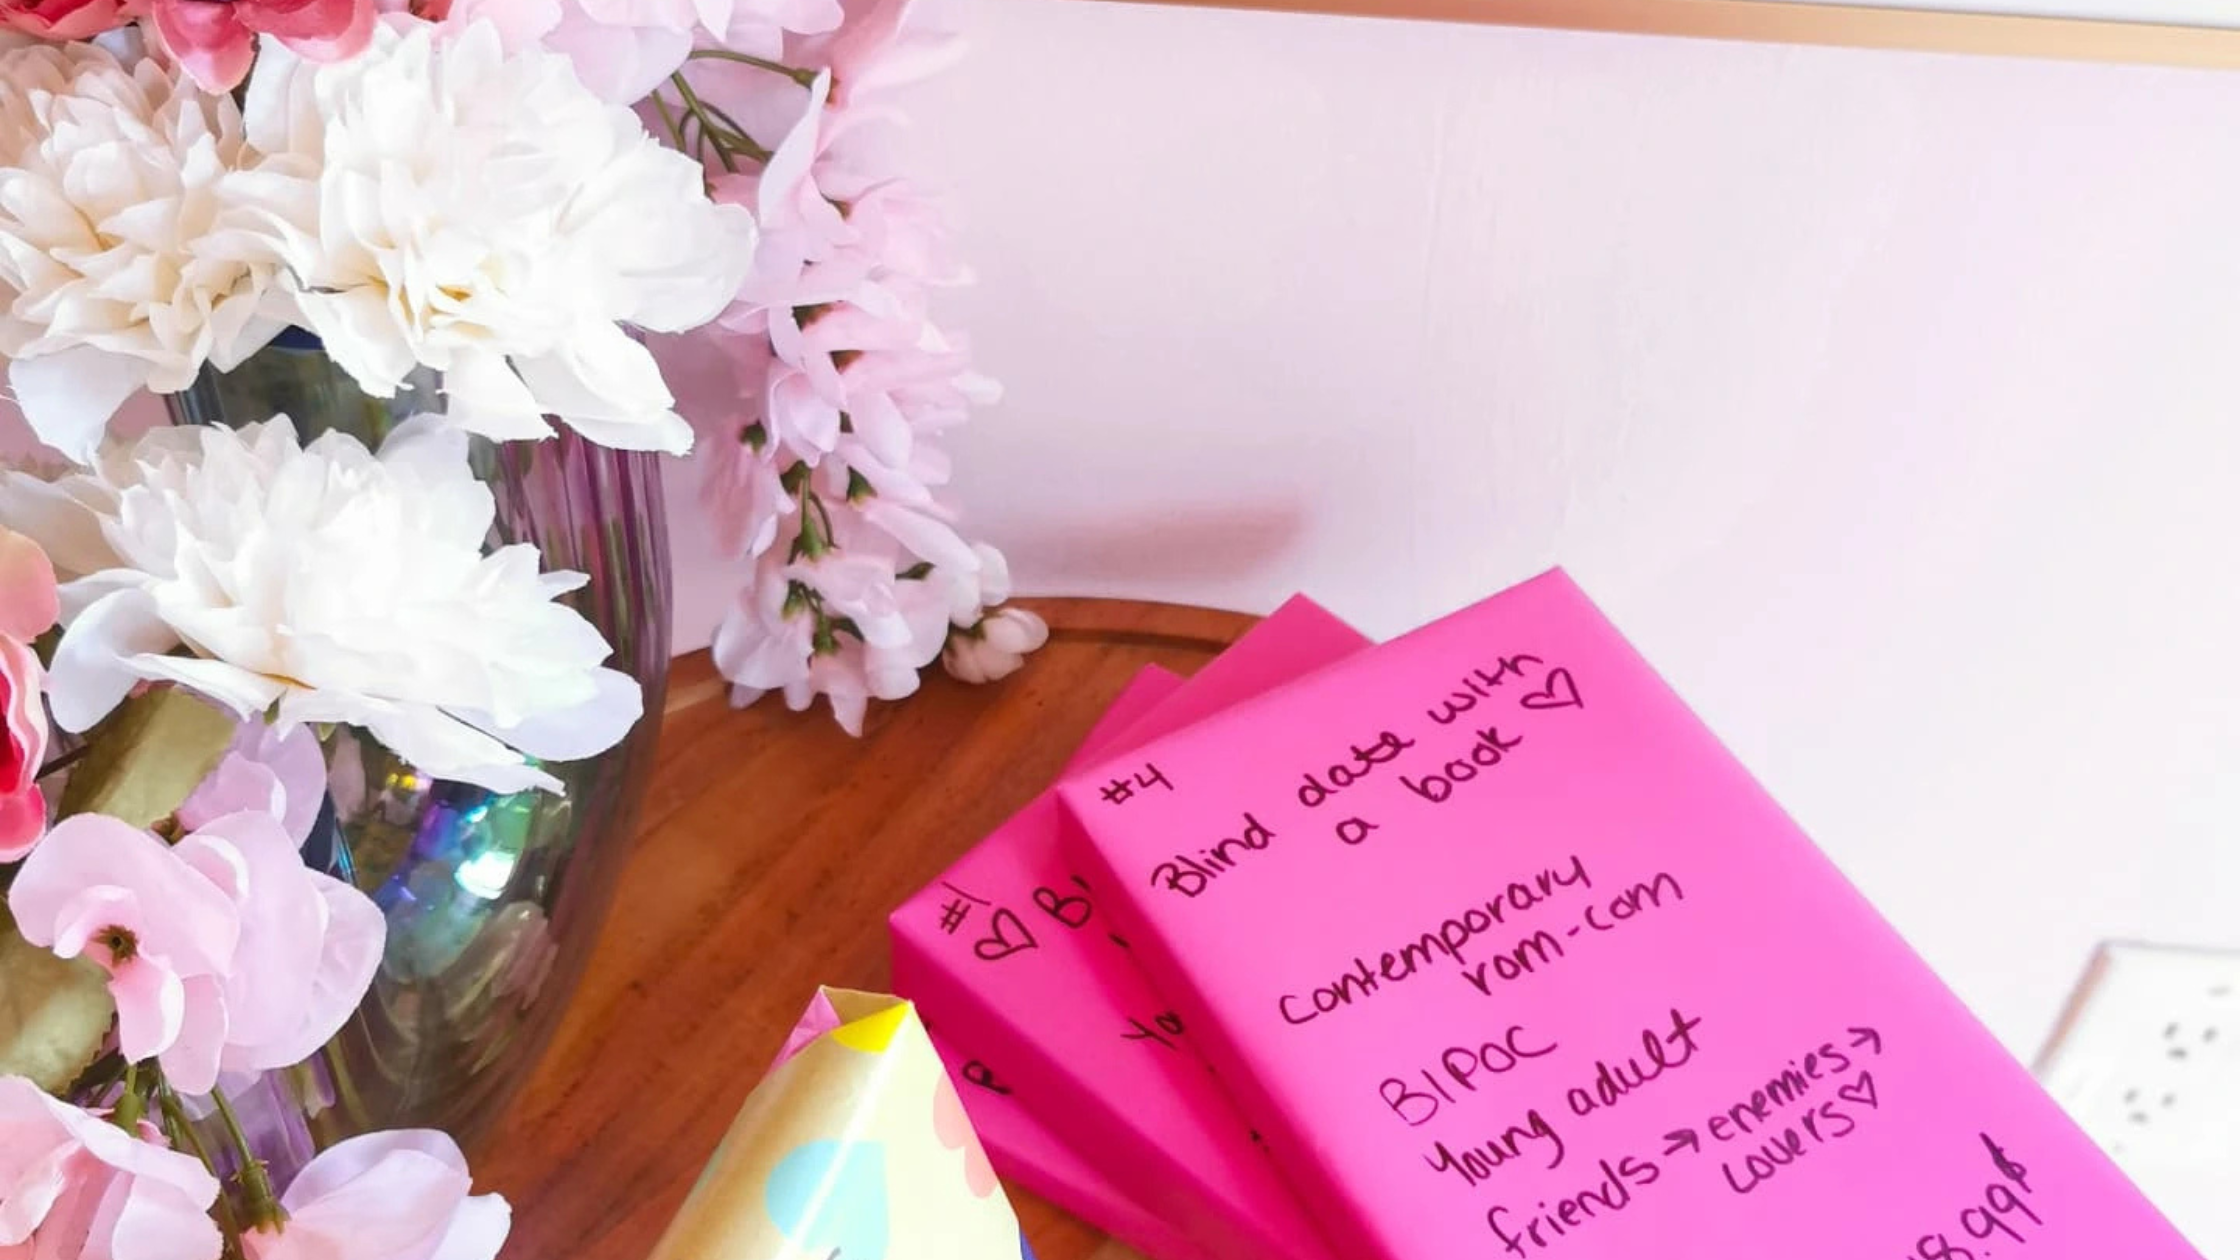 #4
Blind date with
a book ♡
contemporary
rom-com
BIPOC
Young adult
friends → enemies →
lovers ♡
8.99$
#1
♡